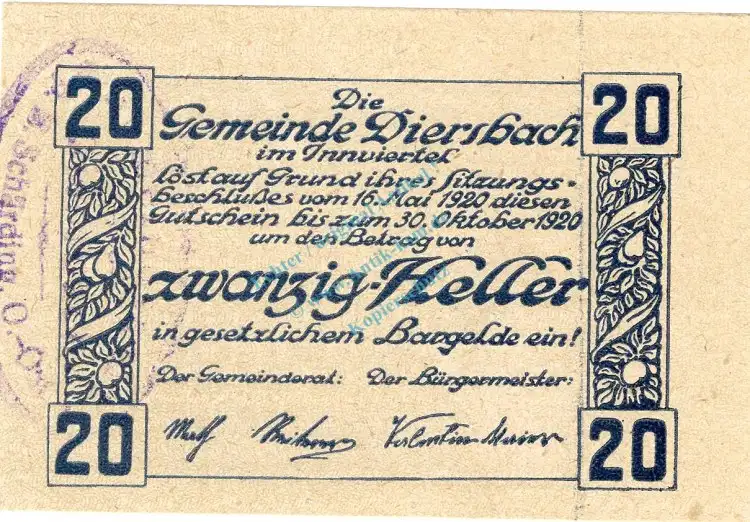 20 20
Die
Gemeinde Diersbach
im Innviertel
löst auf Grund ihres Sitzungs-
beschlußes vom 16. Mai 1920 diesen
Gutschein bis zum 30. Oktober 1920
um den Betrag von
zwanzig-Heller
in gesetzlichem Bargelde ein!
Der Gemeinderat: Der Bürgermeister:
Valentin Maier
20 20
Schärding, O.